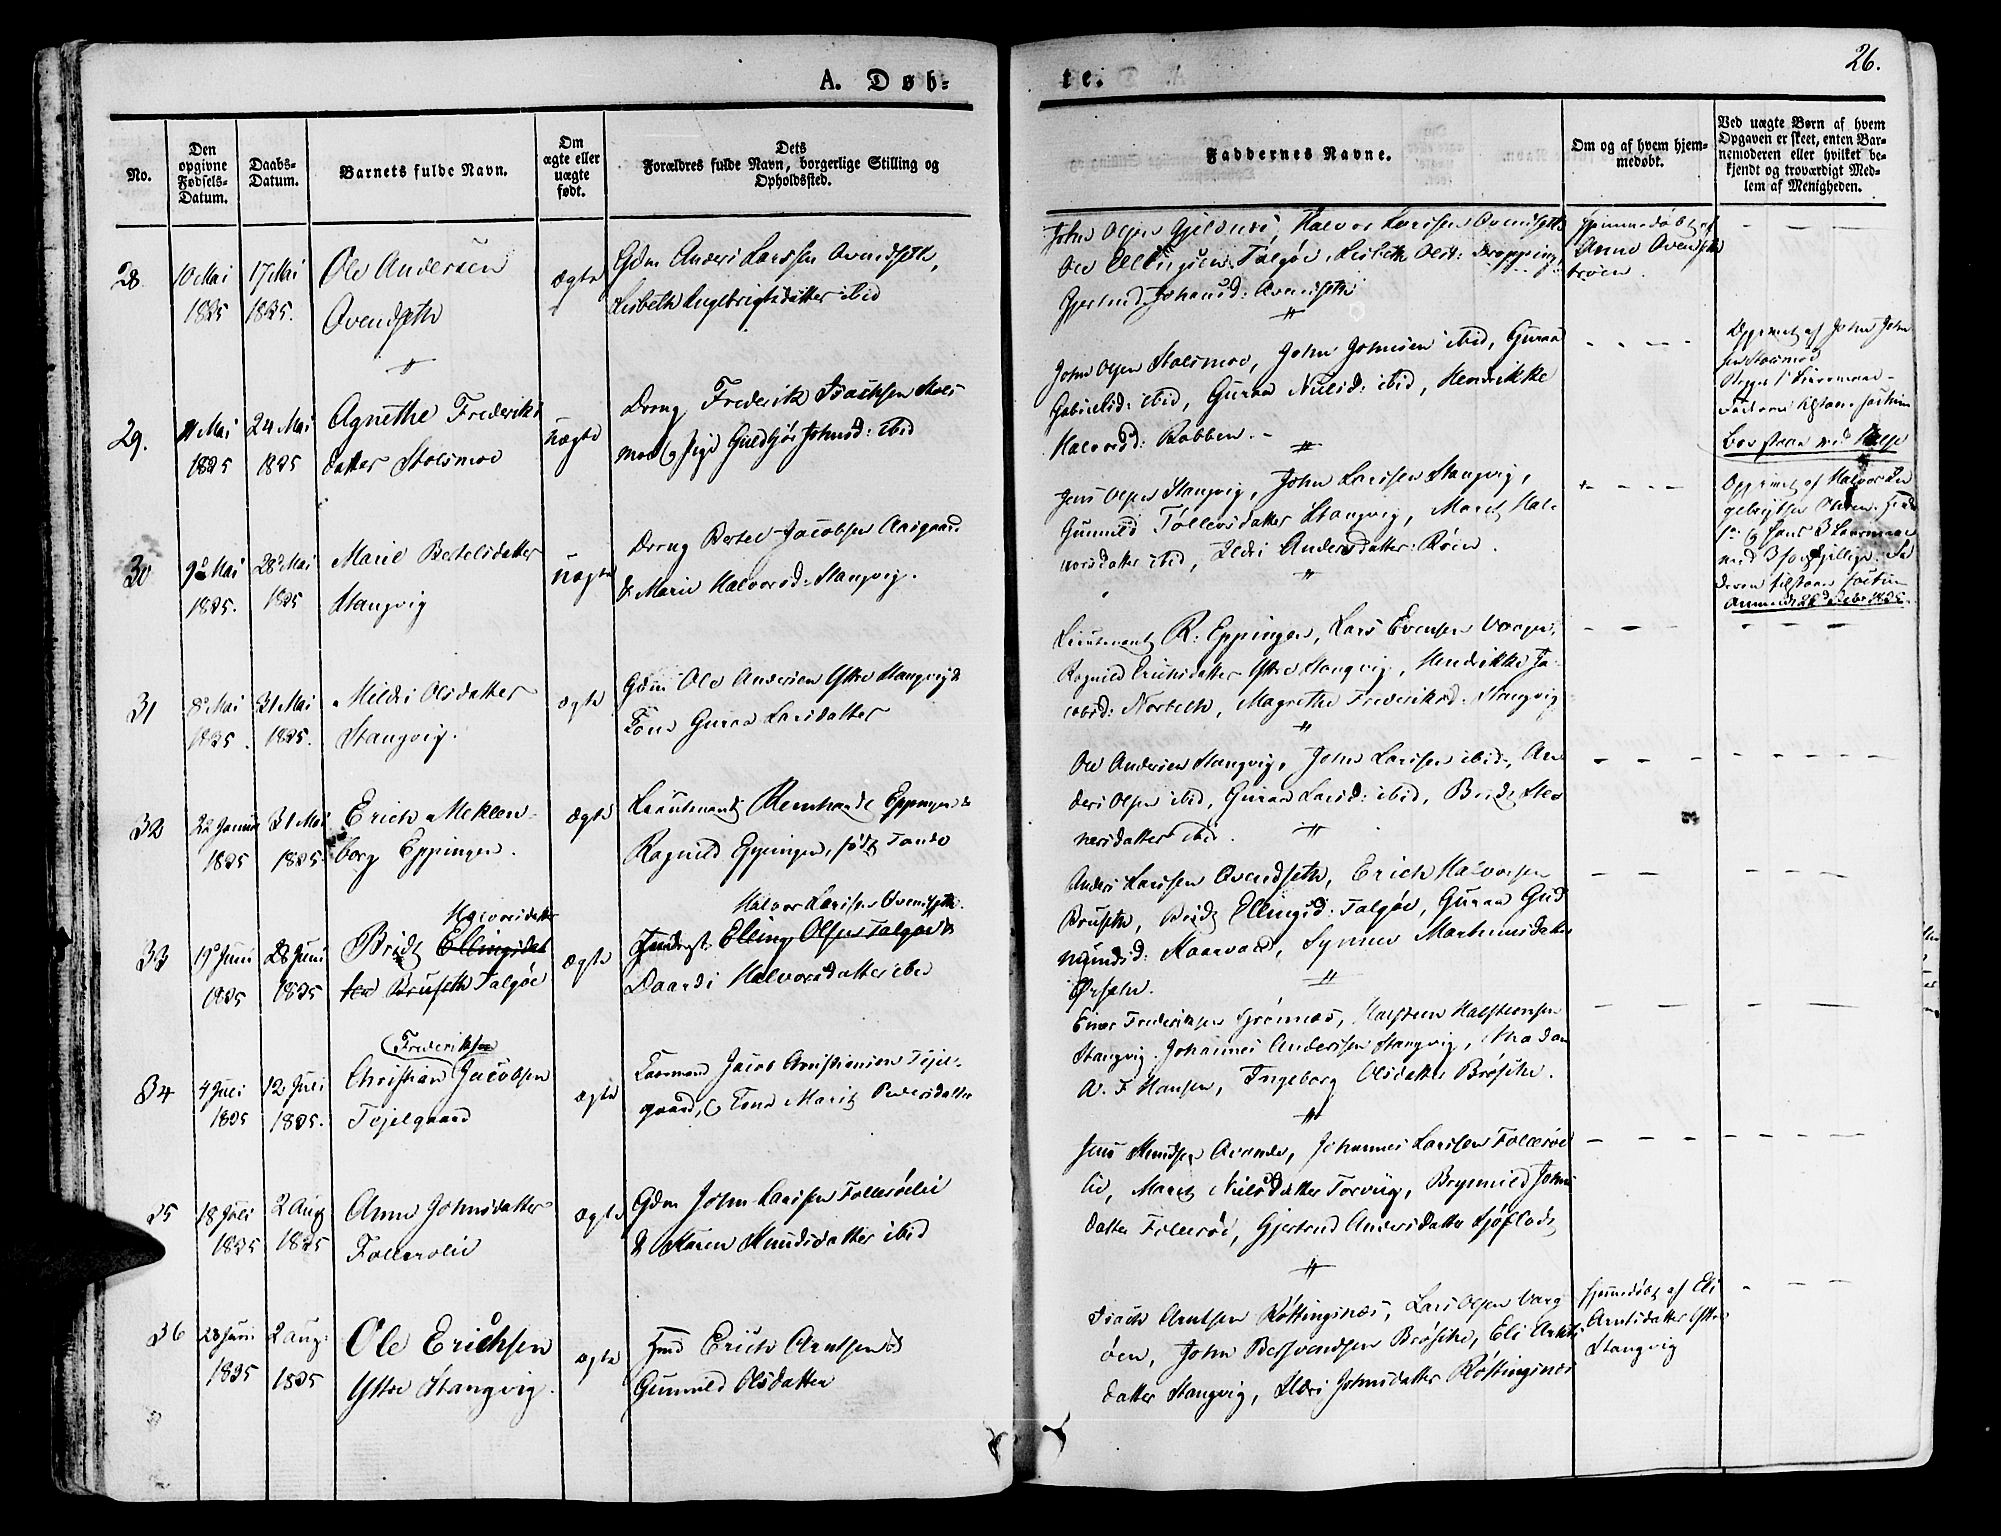 26.
A. Døb-
te.
No.
Den
opgivne
Fødsels-
Datum.
Daabs-
Datum.
Barnets fulde Navn.
Om
ægte eller
uægte
født.
Dets
Forældres fulde Navn, borgerlige Stilling og
Opholdssted.
Faddernes Navne.
Om og af hvem hjem-
medøbt.
Ved uægte Børn af hvem
Opgaven er skeet, enten Bar-
nemoderen eller hvilket be-
kjendt og troværdigt Med-
lem af Menigheden.
28
10 Mai
1835
17 Mai
1835.
Ole Andersen
Ovendseth
ægte
Gdm Anders Larssen Ovendseth,
Lisbeth Ingebrigtsdatter ibid
John Olsen Gjeldnes, Halvor Larssen Ovendseth
Ole Ellingsen Talgøe, Lisbeth Olsd: Dropping,
Gjertrud Johansd: Ovendseth
hjemmedøbt af
Anne Ovendseth
trøen.
29.
11 Mai
1835
24 Mai
1835
Agnethe Frederiks
datter Stolsmoe
uægte
Dreng Frederik Isachsen Stols
moe og Pige Guldbjør Johnsd: ibid
John Olsen Stolsmoe, John Johnsen ibid, Guraa
Gabrielsd: ibid, Guraa Nielsd: ibid, Hendrikke
Halvorsd: Robben.
Opgivet af John John
sen Stolsmoe
30
9de Mai
1835.
28de Mai
1835
Marie Bertelsdatter
Stangvig
uægte
Dreng Bertel Jacobsen Aasgaard
& Marie Halvorsd: Stangvig.
Jens Olsen Stangvig, John Larssen Stangvig,
Gunnild Tøllevsdatter Stangvig, Marit Hal-
vorsdatter ibid, Ildri Andersdatter Røen.
Opgivet af Halvor In
gebrigtsen
31
8de Mai
1835.
31 Mai
1835.
Mildri Olsdatter
Stangvig.
ægte
Gdm Ole Andersen Ystre Stangvig &
Kone Guraa Larsdatter
Lieutenant R: Eppinger, Lars Evensen Vaagen,
Ragnild Erichsdatter Ystre Stangvig, Hendrikke Ja-
cobsd: Norbeth, Magrethe Frederiksd: Stangvig
32
22 Januar
1835
31 Mai
1835.
Erich Meklen-
borg Eppinger.
ægte
Lieutenant Reinhardt Eppinger &
Ragnild Eppinger, født Tande
Ole Andersen Stangvig, John Larssen ibid, An
ders Olsen ibid, Guraa Larsd: ibid, Berit Ste
nersdatter ibid.
33
19de Juni
1835
28 Juni
1835
Halvorsdatter
Brit Ellingsdat
ter Bruseth Talgøe
ægte
Halvor Larssen Ovendseth
Inderst Elling Olsen Talgøe &
Daardi Halvorsdatter ibid
Anders Larssen Ovendseth, Erich Halvorsen
Bruseth, Brit Ellingsd: Talgøe, Guraa Gud
mundsd: Kaarvaag, Synnev Marthinusdatter
34
4 Juli
1835
12 Juli
1835.
Frederiksen
Christian Jacobsen
Tejelgaard
ægte
Jacob Christiansen Tejel-
gaard, og Kone Marit Pedersdatter
Einer Frederiksen Grønnæs, Halsteen Halsteensen
Stangvig, Johannes Andersen Stangvig, Madam
A. F. Hansen, Ingeborg Olsdatter Brøske.
35
18 Juli
1835
2 Aug
1835
Anne Johnsdatter
Follerølie
ægte
Gdm John Larssen Follerølie
& Karen Knudsdatter ibid
Jens Knudsen Aavandv, Johannes Larssen Follerøe
lie, Marit Nielsdatter Torvig, Brynnild Johns
datter Follerøe, Gjertrud Andersdatter Sjøflodt
36
28 Juni
1835
2 Aug.
1835
Ole Erichsen
Ystre Stangvig.
ægte
Erich Arntsen &
Gunnild Olsdatter
Isach Arntsen Røttingsnæs, Lars Olsen Vaag
øen, John Botsvendsen Brøske, Eli Arnts
datter Stangvig, Ildri Johnsdatter Røttingsnæs
hjemmedøbt af Eli
Arntsdatter Ystre
Stangvig